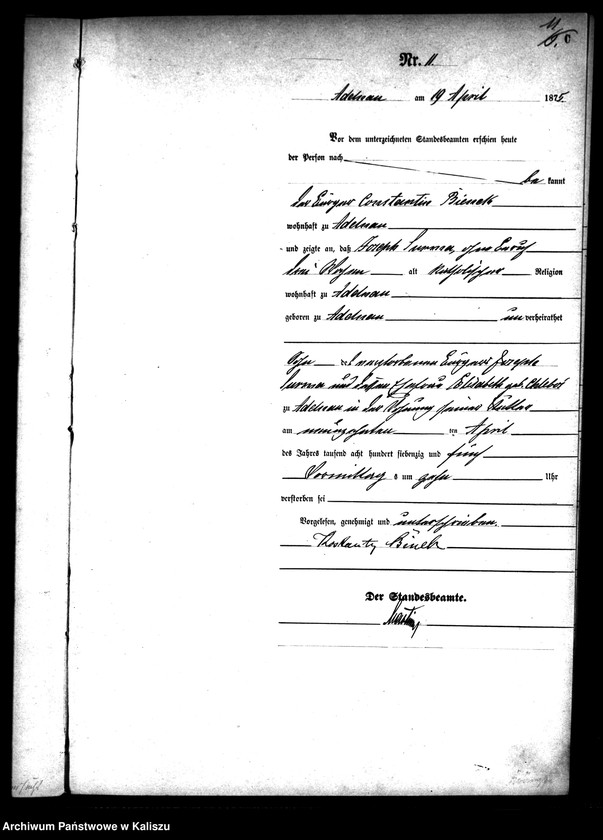 11
Nr. 11.
Adelnau am 19 April 1875.
Vor dem unterzeichneten Standesbeamten erschien heute
der Person nach
bekannt
der Bürger Constantin Bienek
wohnhaft zu Adelnau
und zeigte an, daß Joseph Surma, ohne Beruf
drei Wochen alt katholischer Religion
wohnhaft zu Adelnau
geboren zu Adelnau unverheirathet
Sohn des verstorbenen Bürgers Joseph
Surma und dessen Ehefrau Elisabeth geb.
zu Adelnau in der Wohnung seiner Mutter
am neunzehnten ten April
des Jahres tausend acht hundert siebenzig und fünf
Vormittags um zehn Uhr
verstorben sei
Vorgelesen, genehmigt und unterschrieben.
Binek
Der Standesbeamte.
Archiwum Państwowe w Kaliszu